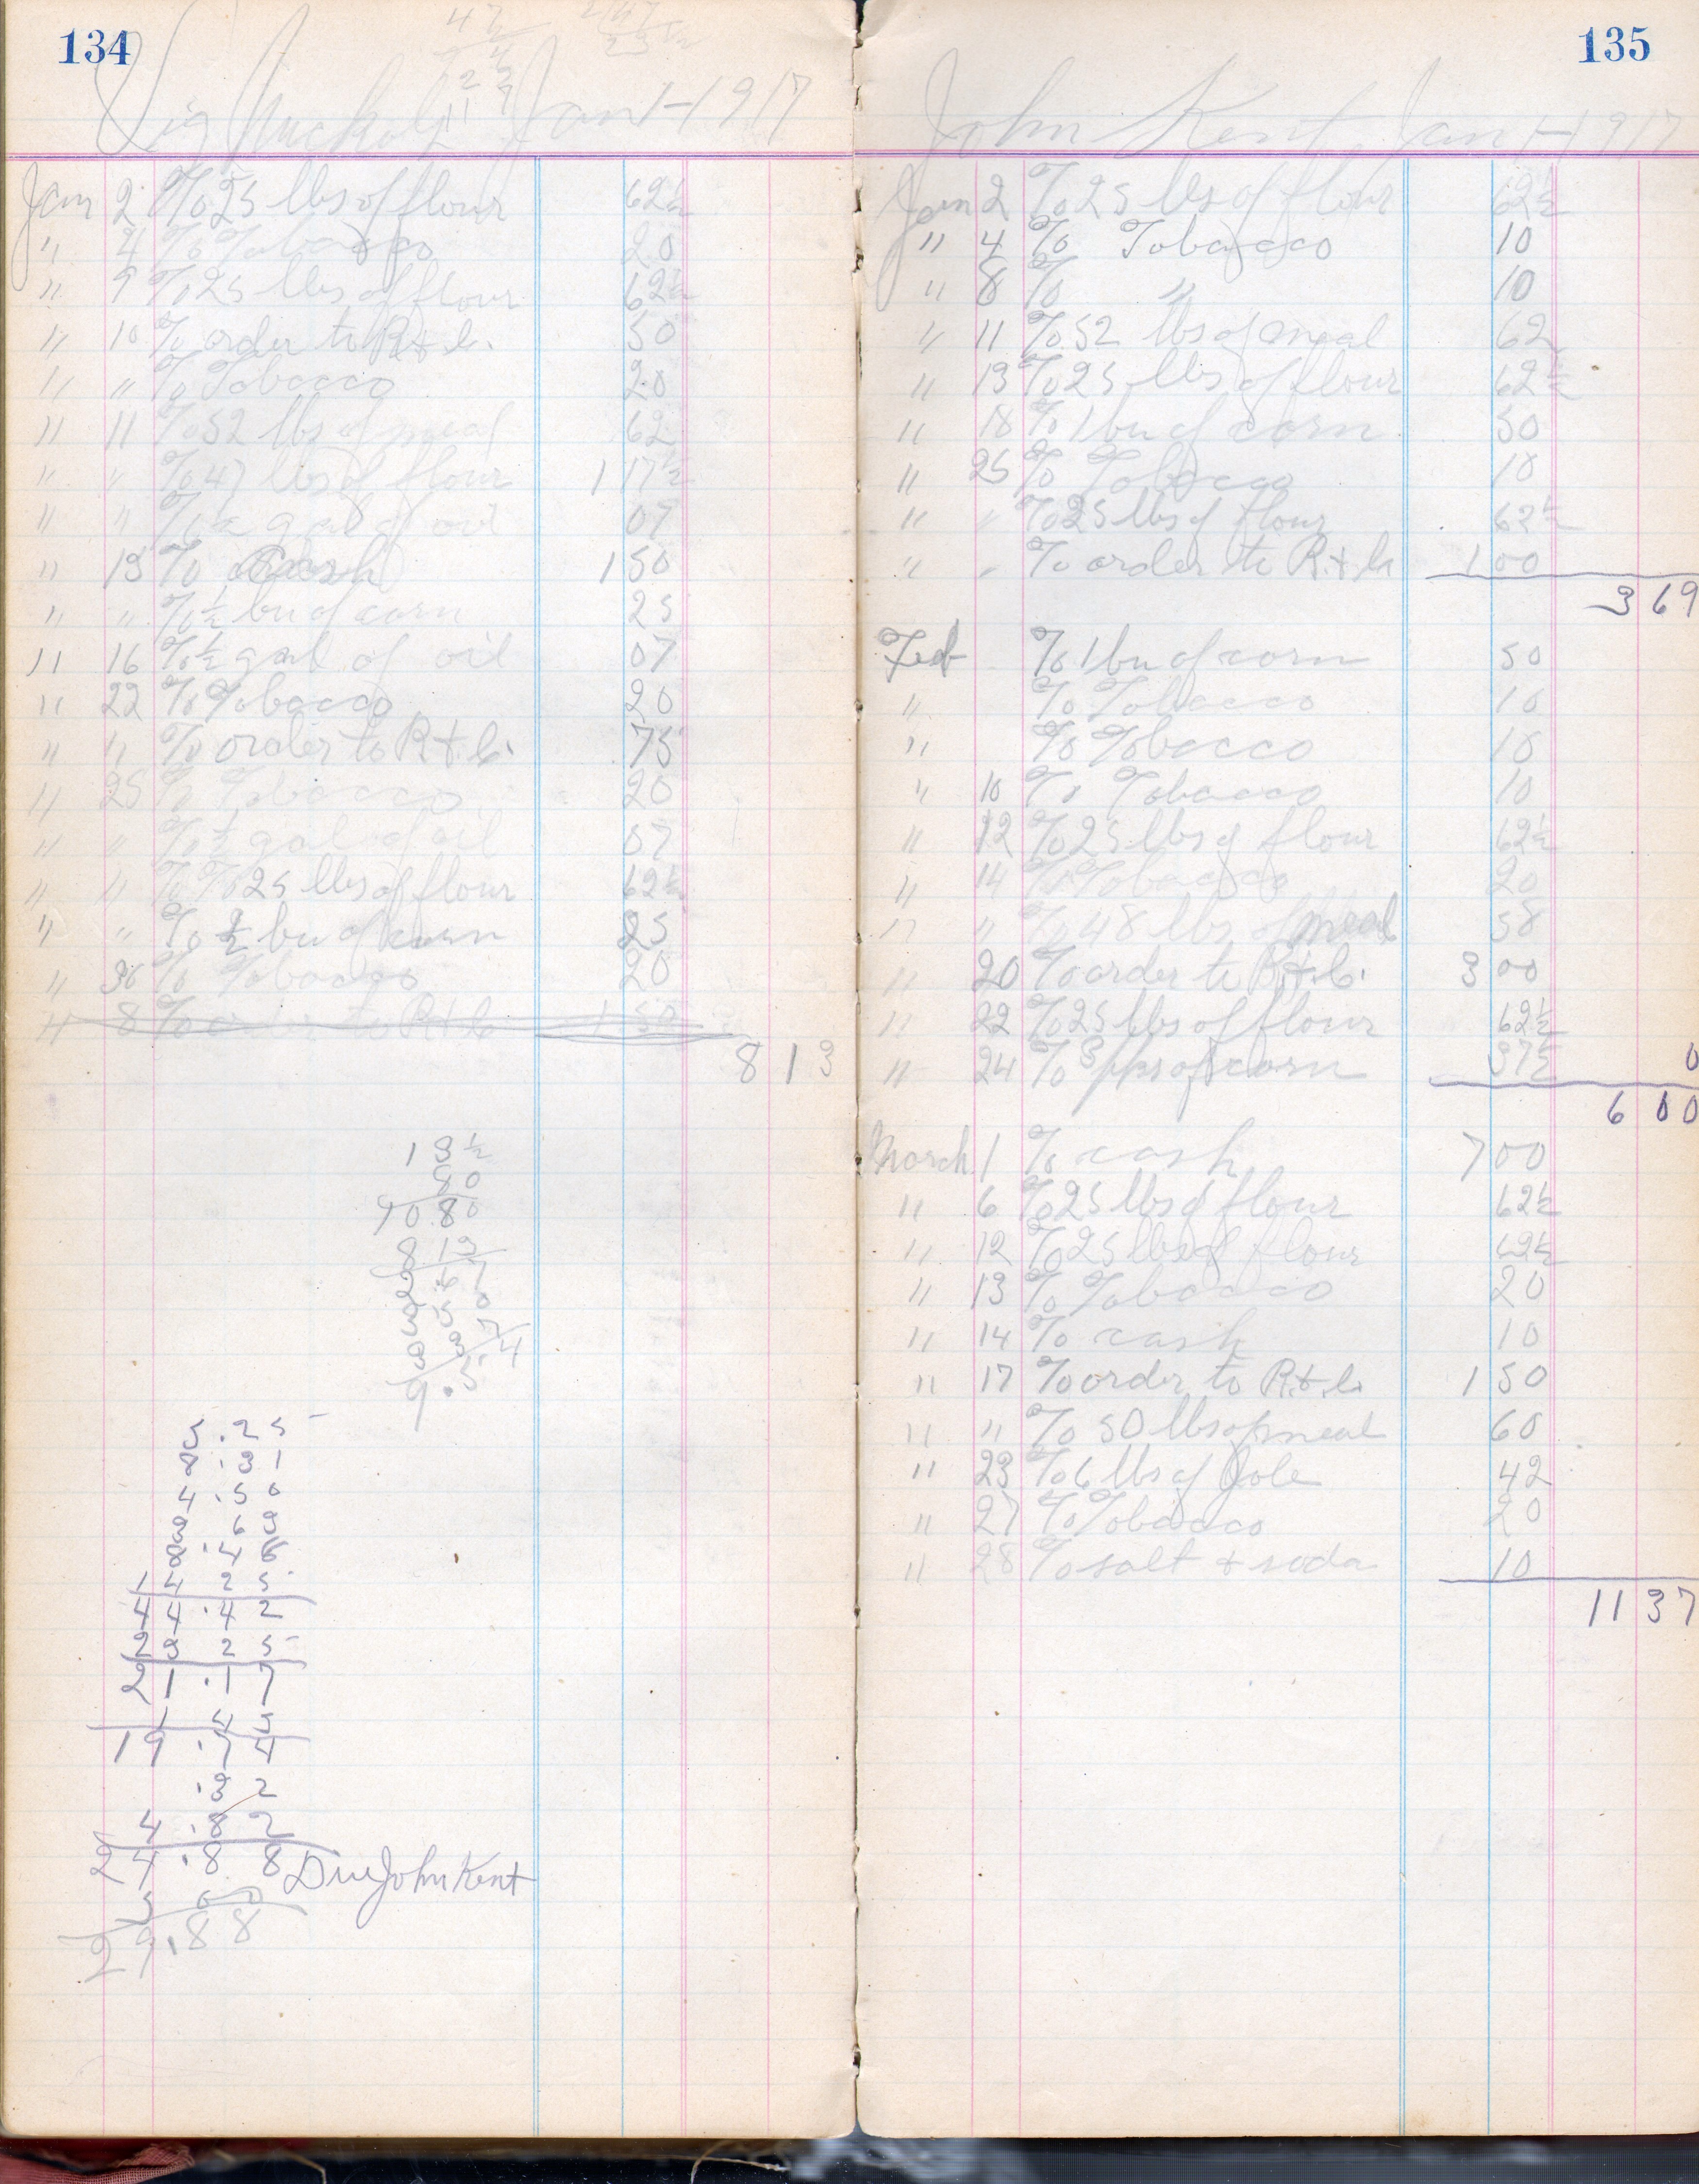 134
Jan 1-1917
Jan 2 % 25 lbs of flour 62½
" 4 % Tobacco 20
" 9 % 25 lbs of flour 62½
" 10 % order to R.+.b. 50
" " % Tobacco 20
" 11 % 52 lbs of meal 62
" " % 47 lbs of flour 1 17½
" " % ½ gal of oil 07
" 13 % Cash 1 50
" " % ½ bu of corn 25
" 16 % ½ gal of oil 07
" 22 % Tobacco 20
" " % order to R.+.b. 75
" 25 % Tobacco 20
" " % ½ gal of oil 07
" " % 25 lbs of flour 62½
" " % ½ bu of corn 25
" 30 % Tobacco 20
" 8 % order to R+b 1 50
8 13
1 3½
80
10 80
8 13
2 67
3 50
3 37
9.54
5.25
8.31
4.50
3 63
8.48
14 25
44.42
23 25
21.17
1 43
19.74
.32
4.82
24.88 Due John Kent
5 00
29.88
135
John Kent Jan 1-1917
Jan 2 % 25 lbs of flour 62½
" 4 % Tobacco 10
" 8 % " 10
" 11 % 52 lbs of meal 62
" 13 % 25 lbs of flour 62½
" 18 % 1 bu of corn 50
" 25 % Tobacco 10
" " % 25 lbs of flour 62½
" " % order to R.+.b. 1 00
3 69
Feb % 1 bu of corn 50
" % Tobacco 10
" % Tobacco 10
" 10 % Tobacco 10
" 12 % 25 lbs of flour 62½
" 14 % Tobacco 20
" " % 48 lbs of meal 58
" 20 % order to R.+.b. 3 00
" 22 % 25 lbs of flour 62½
" 24 % 3 pks of corn 37½
0
6 00
March 1 % cash 7 00
" 6 % 25 lbs of flour 62½
" 12 % 25 lbs of flour 62½
" 13 % Tobacco 20
" 14 % cash 10
" 17 % order to R.+.b. 1 50
" " % 50 lbs of meal 60
" 23 % 6 lbs of Jole 42
" 27 % Tobacco 20
" 28 % salt + soda 10
11 37